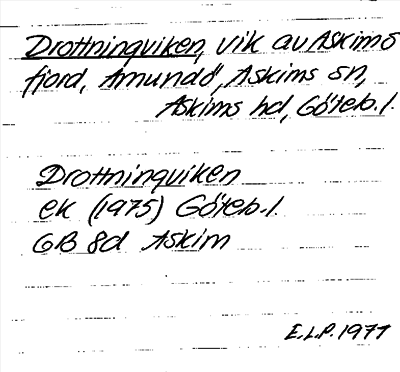 Drottningviken, vik av Askims
fjord, Amundö, Askims sn,
Askims hd, Göteb. l.
Drottningviken
ek (1975) Göteb. l.
GB 8d Askim
E.L.P. 1977